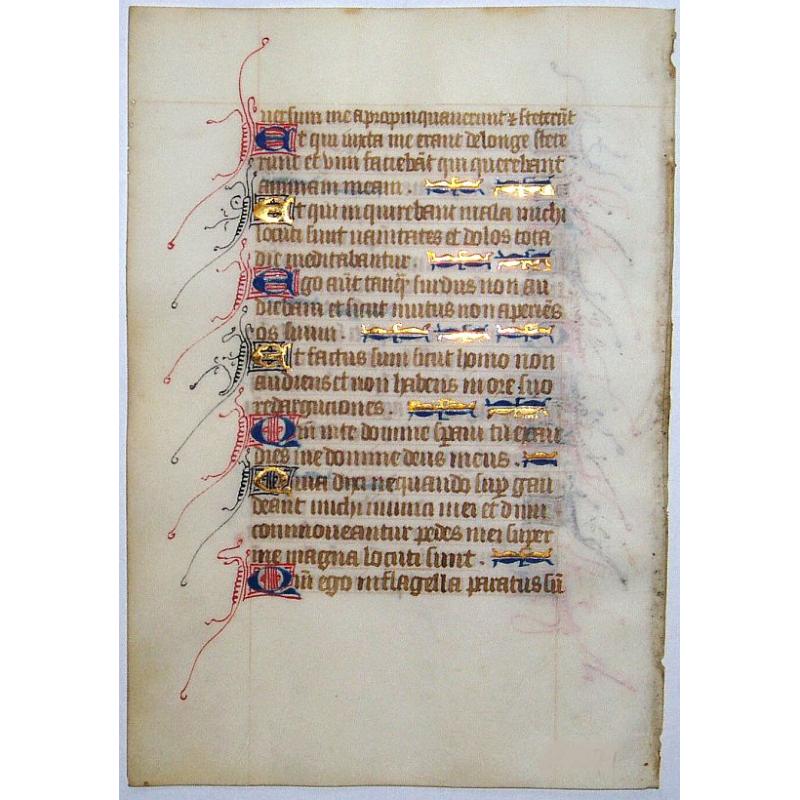 uersum me apropinquauerunt ⁊ steterūt
Et qui iuxta me erant delonge stete
runt et vim faciebāt qui querebant
animam meam.
Et qui inquirebant mala michi
locuti sunt uanitates et dolos tota
die meditabantur.
Ego aūt tanq̄ surdus non au
diebam et sicut mutus non aperiēs
os suum.
Et factus sum sicut homo non
audiens et non habens in ore suo
redarguciones.
Qm̄ in te domine speraui tu exau
dies me domine deus meus.
Quia dixi nequando sup̄ gau
deant michi inimici mei et dum
commoueantur pedes mei super
me magna locuti sunt.
Qm̄ ego in flagella paratus sū